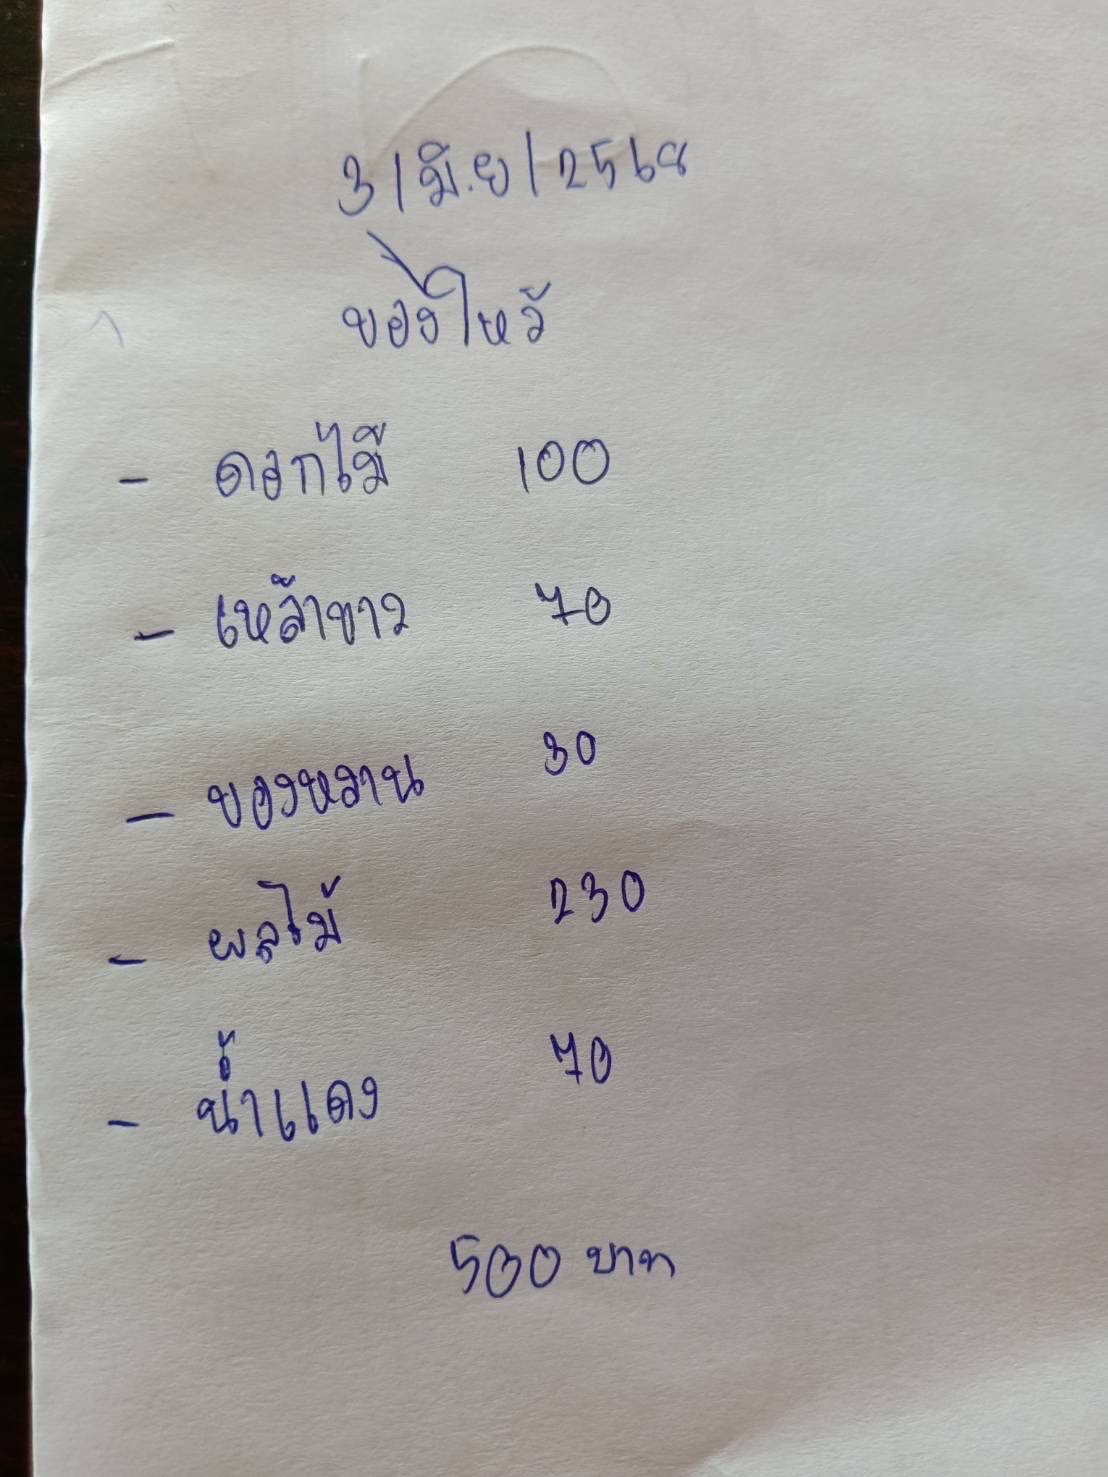 3/มิ.ย/2568
ของไหว้
- ดอกไม้ 100
- เหล้าขาว 70
- ของหวาน 30
- ผลไม้ 230
- น้ำแดง 70
500 บาท